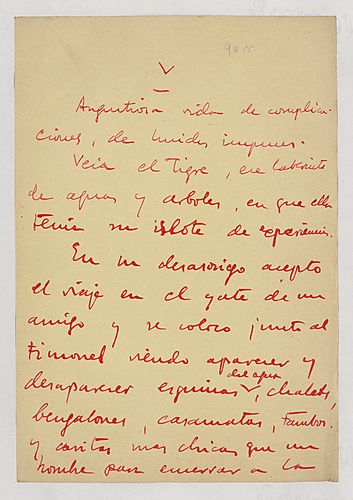 96 m
V
Angustiosa vida de complica-
ciones, de huidas impunes.
Veia el Tigre, ese laberinto
de aguas y arboles, en que ella
tenia su islote de experiencias.
En un desasosiego acepto
el viaje en el yate de un
amigo y se coloco junto al
timonel viendo aparecer y
del agua
desaparecer esquinas, chalets,
bengalones, casamatas, tambos.
y casitas mas chicas que un
hombre para encerrar a la